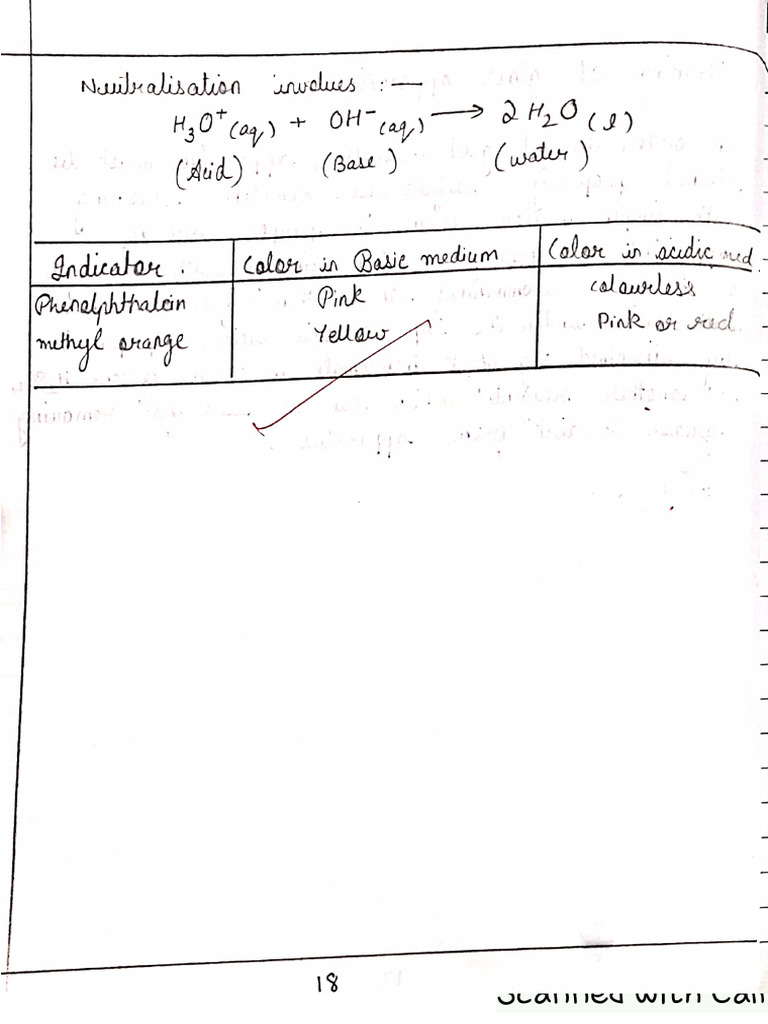 Neutralisation involves :—
H₃O⁺(aq) + OH⁻(aq) ⟶ 2H₂O(l)
(Acid) (Base) (water)
Indicator. Color in Basic medium Color in acidic med
Phenolphthalein Pink colourless
methyl orange Yellow Pink or red
18
Scanned with Cam